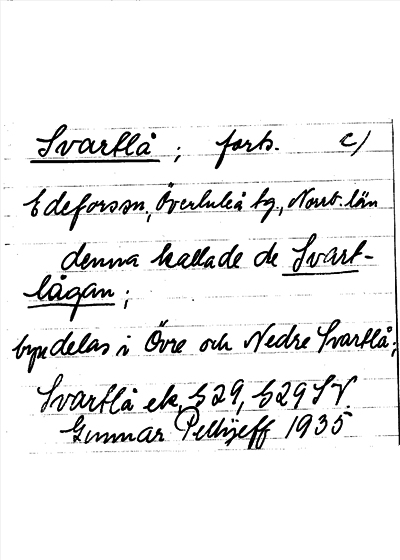 Svartlå ; forts. c)
Edeforssn, Överluleå tg., Norrb. län
denna kallade de Svart-
lågan ;
byn delas i Övre och Nedre Svartlå ;
Svartlå ek. b29, b29 SV.
Gunnar Pellijeff 1935